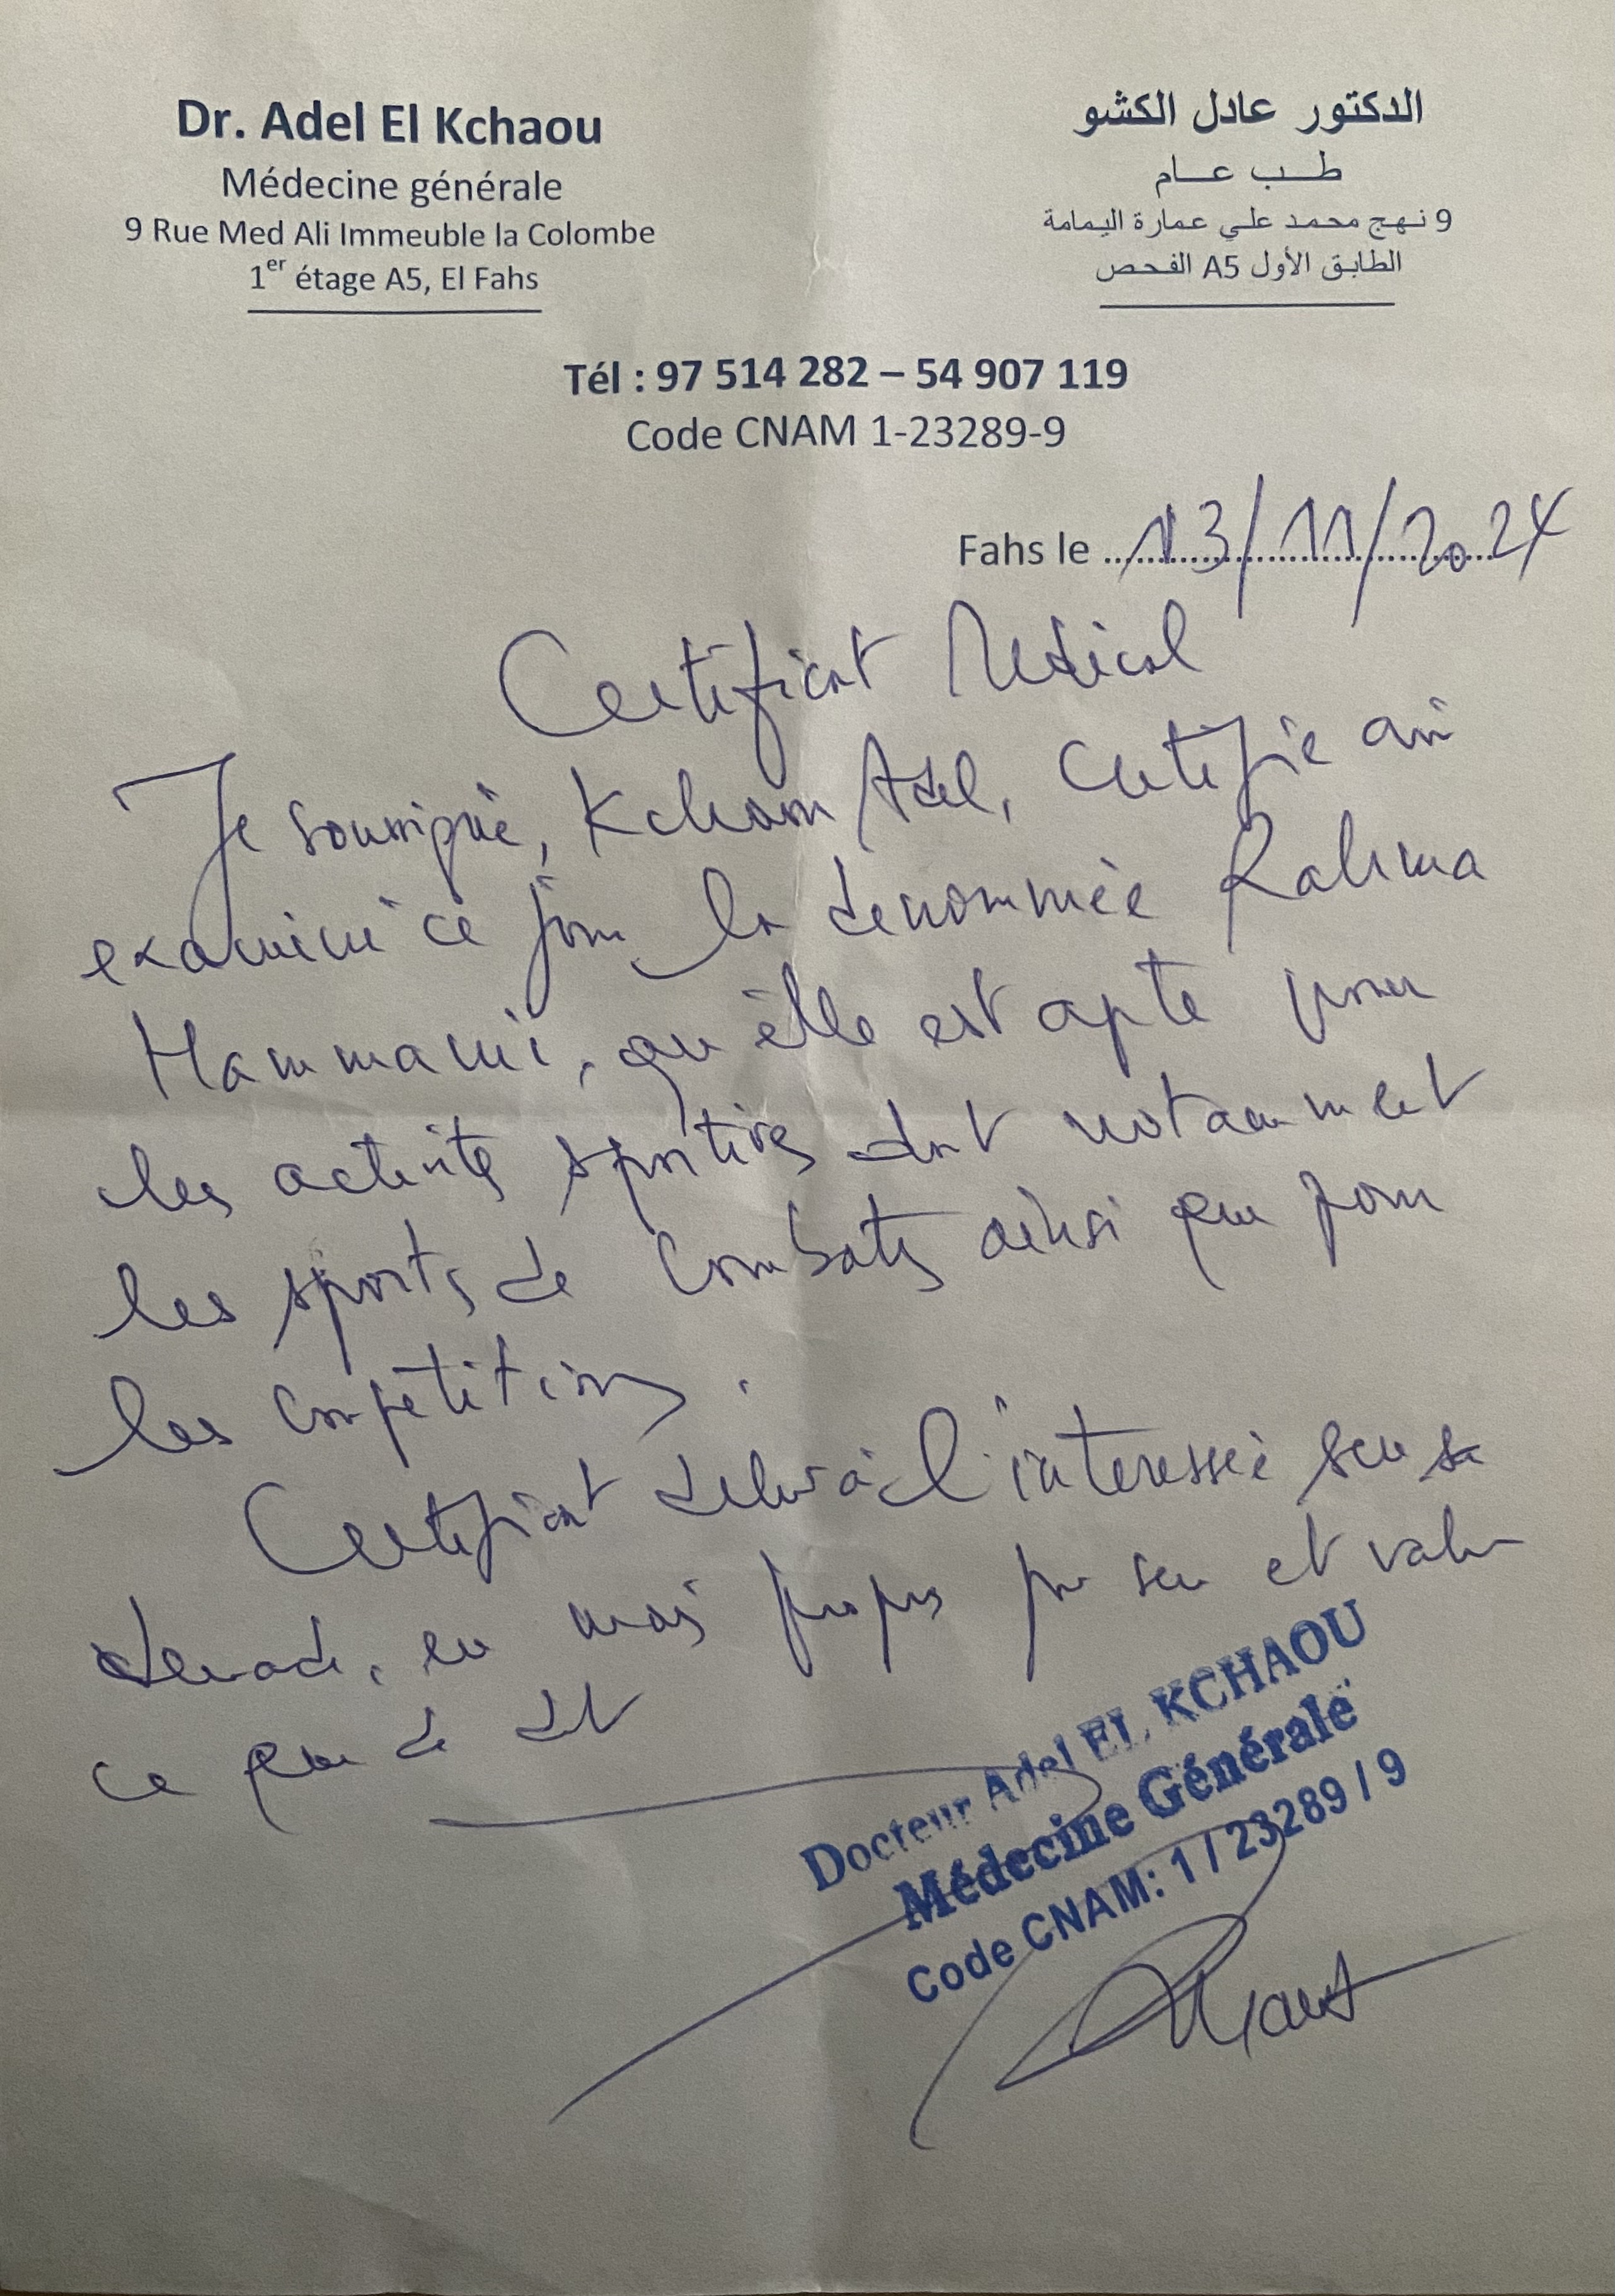 Dr. Adel El Kchaou
Médecine générale
9 Rue Med Ali Immeuble la Colombe
1er étage A5, El Fahs
الدكتور عادل الكشو
طب عام
9 نهج محمد علي عمارة اليمامة
الطابق الأول A5 الفحص
Tél : 97 514 282 – 54 907 119
Code CNAM 1-23289-9
Fahs le 13/11/2024
Certificat Médical
Je soussigné, Kchaou Adel, certifie avoir
examiné ce jour la dénommée Rahma
Hammami, qu'elle est apte pour
les activités sportives dont notamment
les sports de combats ainsi que pour
les compétitions.
Certificat délivré à l'intéressée sur sa
demande, en mains propres pour servir et valoir
ce que de droit
Docteur Adel EL KCHAOU
Médecine Générale
Code CNAM: 1 / 23289 / 9